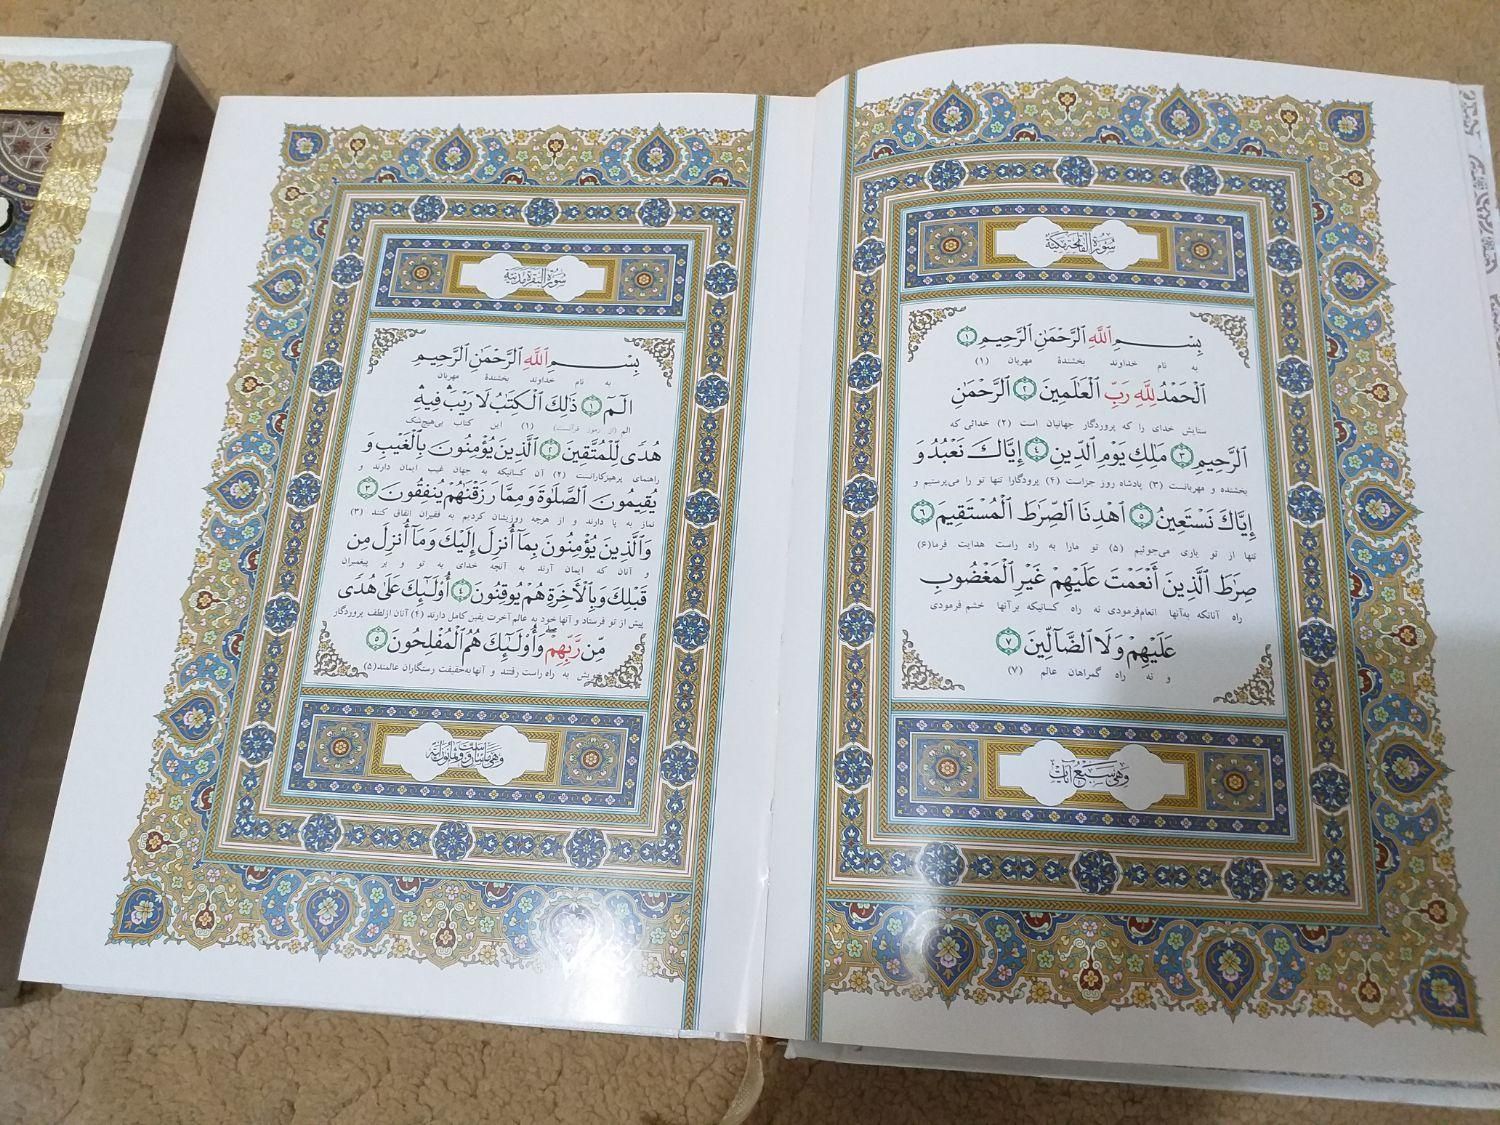 سُورَةُ الفَاتِحَةِ مَكِّيَّة
بِسْمِ اللَّهِ الرَّحْمَٰنِ الرَّحِيمِ ١
به نام خداوند بخشندهٔ مهربان (۱)
الْحَمْدُ لِلَّهِ رَبِّ الْعَالَمِينَ ٢ الرَّحْمَٰنِ
ستایش خدای را که پروردگار جهانیان است (۲) خدائی که
الرَّحِيمِ ٣ مَالِكِ يَوْمِ الدِّينِ ٤ إِيَّاكَ نَعْبُدُ وَ
بخشنده و مهربانست (۳) پادشاه روز جزاست (۴) پروردگارا تنها تو را می‌پرستیم و
إِيَّاكَ نَسْتَعِينُ ٥ اهْدِنَا الصِّرَاطَ الْمُسْتَقِيمَ ٦
تنها از تو یاری می‌جوئیم (۵) تو مارا به راه راست هدایت فرما(۶)
صِرَاطَ الَّذِينَ أَنْعَمْتَ عَلَيْهِمْ غَيْرِ الْمَغْضُوبِ
راه آنانکه به‌آنها انعام‌فرمودی نه راه کسانیکه برآنها خشم فرمودی
عَلَيْهِمْ وَلَا الضَّالِّينَ ٧
و نه راه گمراهان عالم (۷)
وَهِيَ سَبْعُ آيَات
سُورَةُ البَقَرَةِ مَدَنِيَّة
بِسْمِ اللَّهِ الرَّحْمَٰنِ الرَّحِيمِ
به نام خداوند بخشندهٔ مهربان
الٓمٓ ١ ذَٰلِكَ الْكِتَٰبُ لَا رَيْبَ ۛ فِيهِ ۛ
الم (از رموز قرآنست) (۱) این کتاب بی‌هیچ‌شک
هُدًى لِّلْمُتَّقِينَ ٢ الَّذِينَ يُؤْمِنُونَ بِالْغَيْبِ وَ
راهنمای پرهیزکارانست (۲) آن کسانیکه به جهان غیب ایمان دارند و
يُقِيمُونَ الصَّلَوٰةَ وَمِمَّا رَزَقْنَٰهُمْ يُنفِقُونَ ٣
نماز به پا دارند و از هرچه روزیشان کردیم به فقیران انفاق کنند (۳)
وَالَّذِينَ يُؤْمِنُونَ بِمَا أُنزِلَ إِلَيْكَ وَمَا أُنزِلَ مِن
و آنان که ایمان آرند به آنچه خدای به تو و بر پیغمبران
قَبْلِكَ وَبِالْآخِرَةِ هُمْ يُوقِنُونَ ٤ أُولَٰئِكَ عَلَىٰ هُدًى
پیش از تو فرستاد و آنها خود به عالم آخرت یقین کامل دارند (۴) آنان ازلطف پروردگار
مِّن رَّبِّهِمْ ۖ وَأُولَٰئِكَ هُمُ الْمُفْلِحُونَ ٥
خویش به راه راست رفتند و آنها به‌حقیقت رستگاران عالمند(۵)